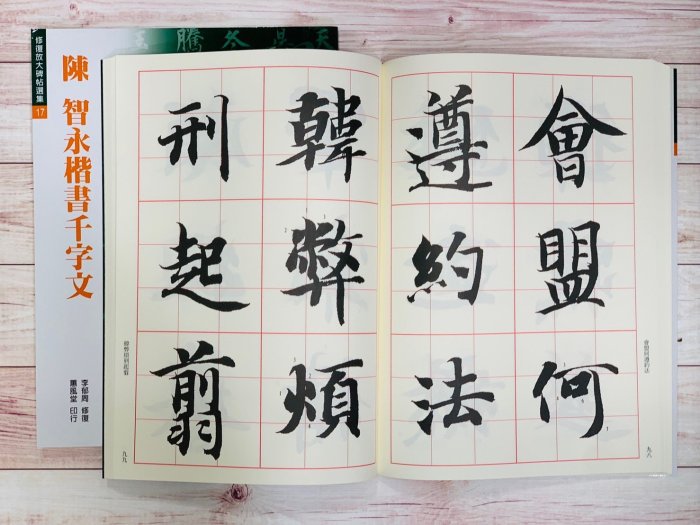 天
冬
騰
修復放大碑帖選集
17
陳 智永楷書千字文
李郁周 修復
蕙風堂 印行
會盟何遵約法
九八
會盟何
遵約法
韓弊煩
刑起翦
韓弊煩刑起翦
九九